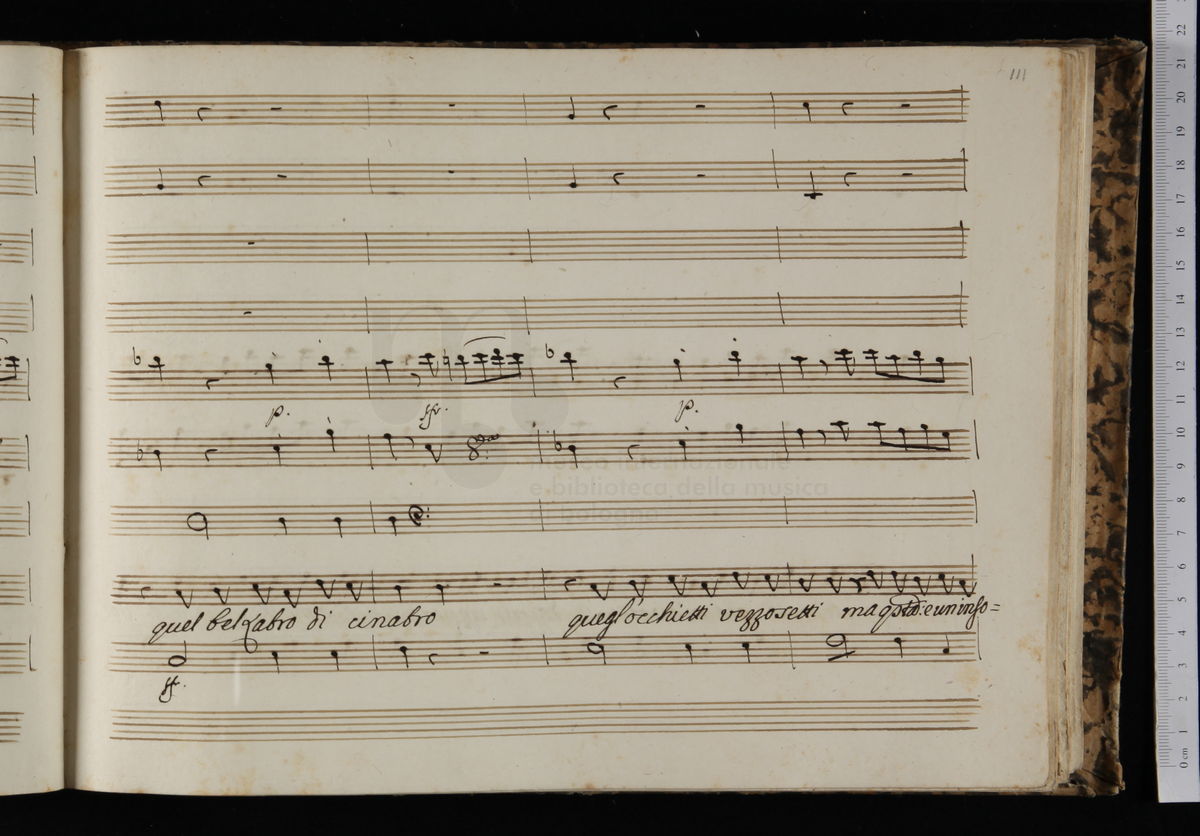 111
p. sfr. p.
quel bel labro di cinabro quegl'occhietti vezzosetti ma
sf.
museo internazionale
e biblioteca della musica
22
21
20
19
18
17
16
15
14
13
12
11
10
9
8
7
6
5
4
3
2
1
0 cm